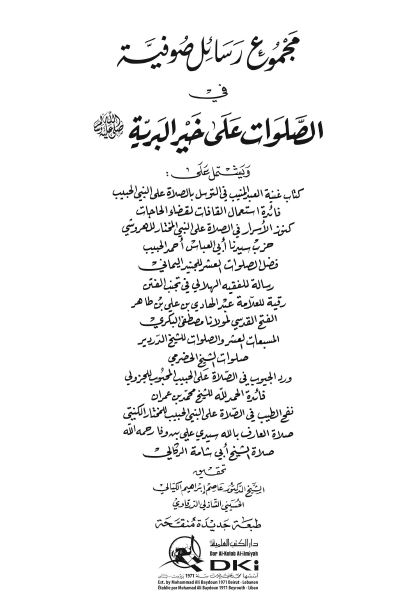 مجموع رسائل صوفية
في
الصلوات على خير البرية ﷺ
ويشتمل على:
كتاب غنية العبد المنيب في التوسل بالصلاة على النبي الحبيب
فائدة استعمال القافات لقضاء الحاجات
كنوز الأسرار في الصلاة على النبي المختار للهاروشي
حزب سيدنا أبي العباس أحمد الحبيب
فضل الصلوات العشر للجنيد اليماني
رسالة للفقيه الهلالي في تجند الفتن
رقية للعلامة عبد الهادي بن علي بن طاهر
الفتح القدسي لمولانا مصطفى البكري
المسبعات العشر والصلوات للشيخ الدردير
صلوات الشيخ الحضرمي
ورد الجيوب في الصلاة على الحبيب المحبوب للجزولي
فائدة الحمد لله للشيخ محمد بن عمران
نفح الطيب في الصلاة على النبي الحبيب للمختار الكنتي
صلاة العارف بالله سيدي علي بن وفا رحمه الله
صلاة الشيخ أبي شامة الركالي
تحقيق
الشيخ الدكتور عاصم إبراهيم الكيالي
الحسيني الشاذلي الدرقاوي
طبعة جديدة منقحة
دار الكتب العلمية
Dar Al-Kotob Al-ilmiyah
DKi
أسسها محمد علي بيضون سنة 1971 بيروت - لبنان
Est. by Mohammad Ali Baydoun 1971 Beirut - Lebanon
Établie par Mohamad Ali Baydoun 1971 Beyrouth - Liban